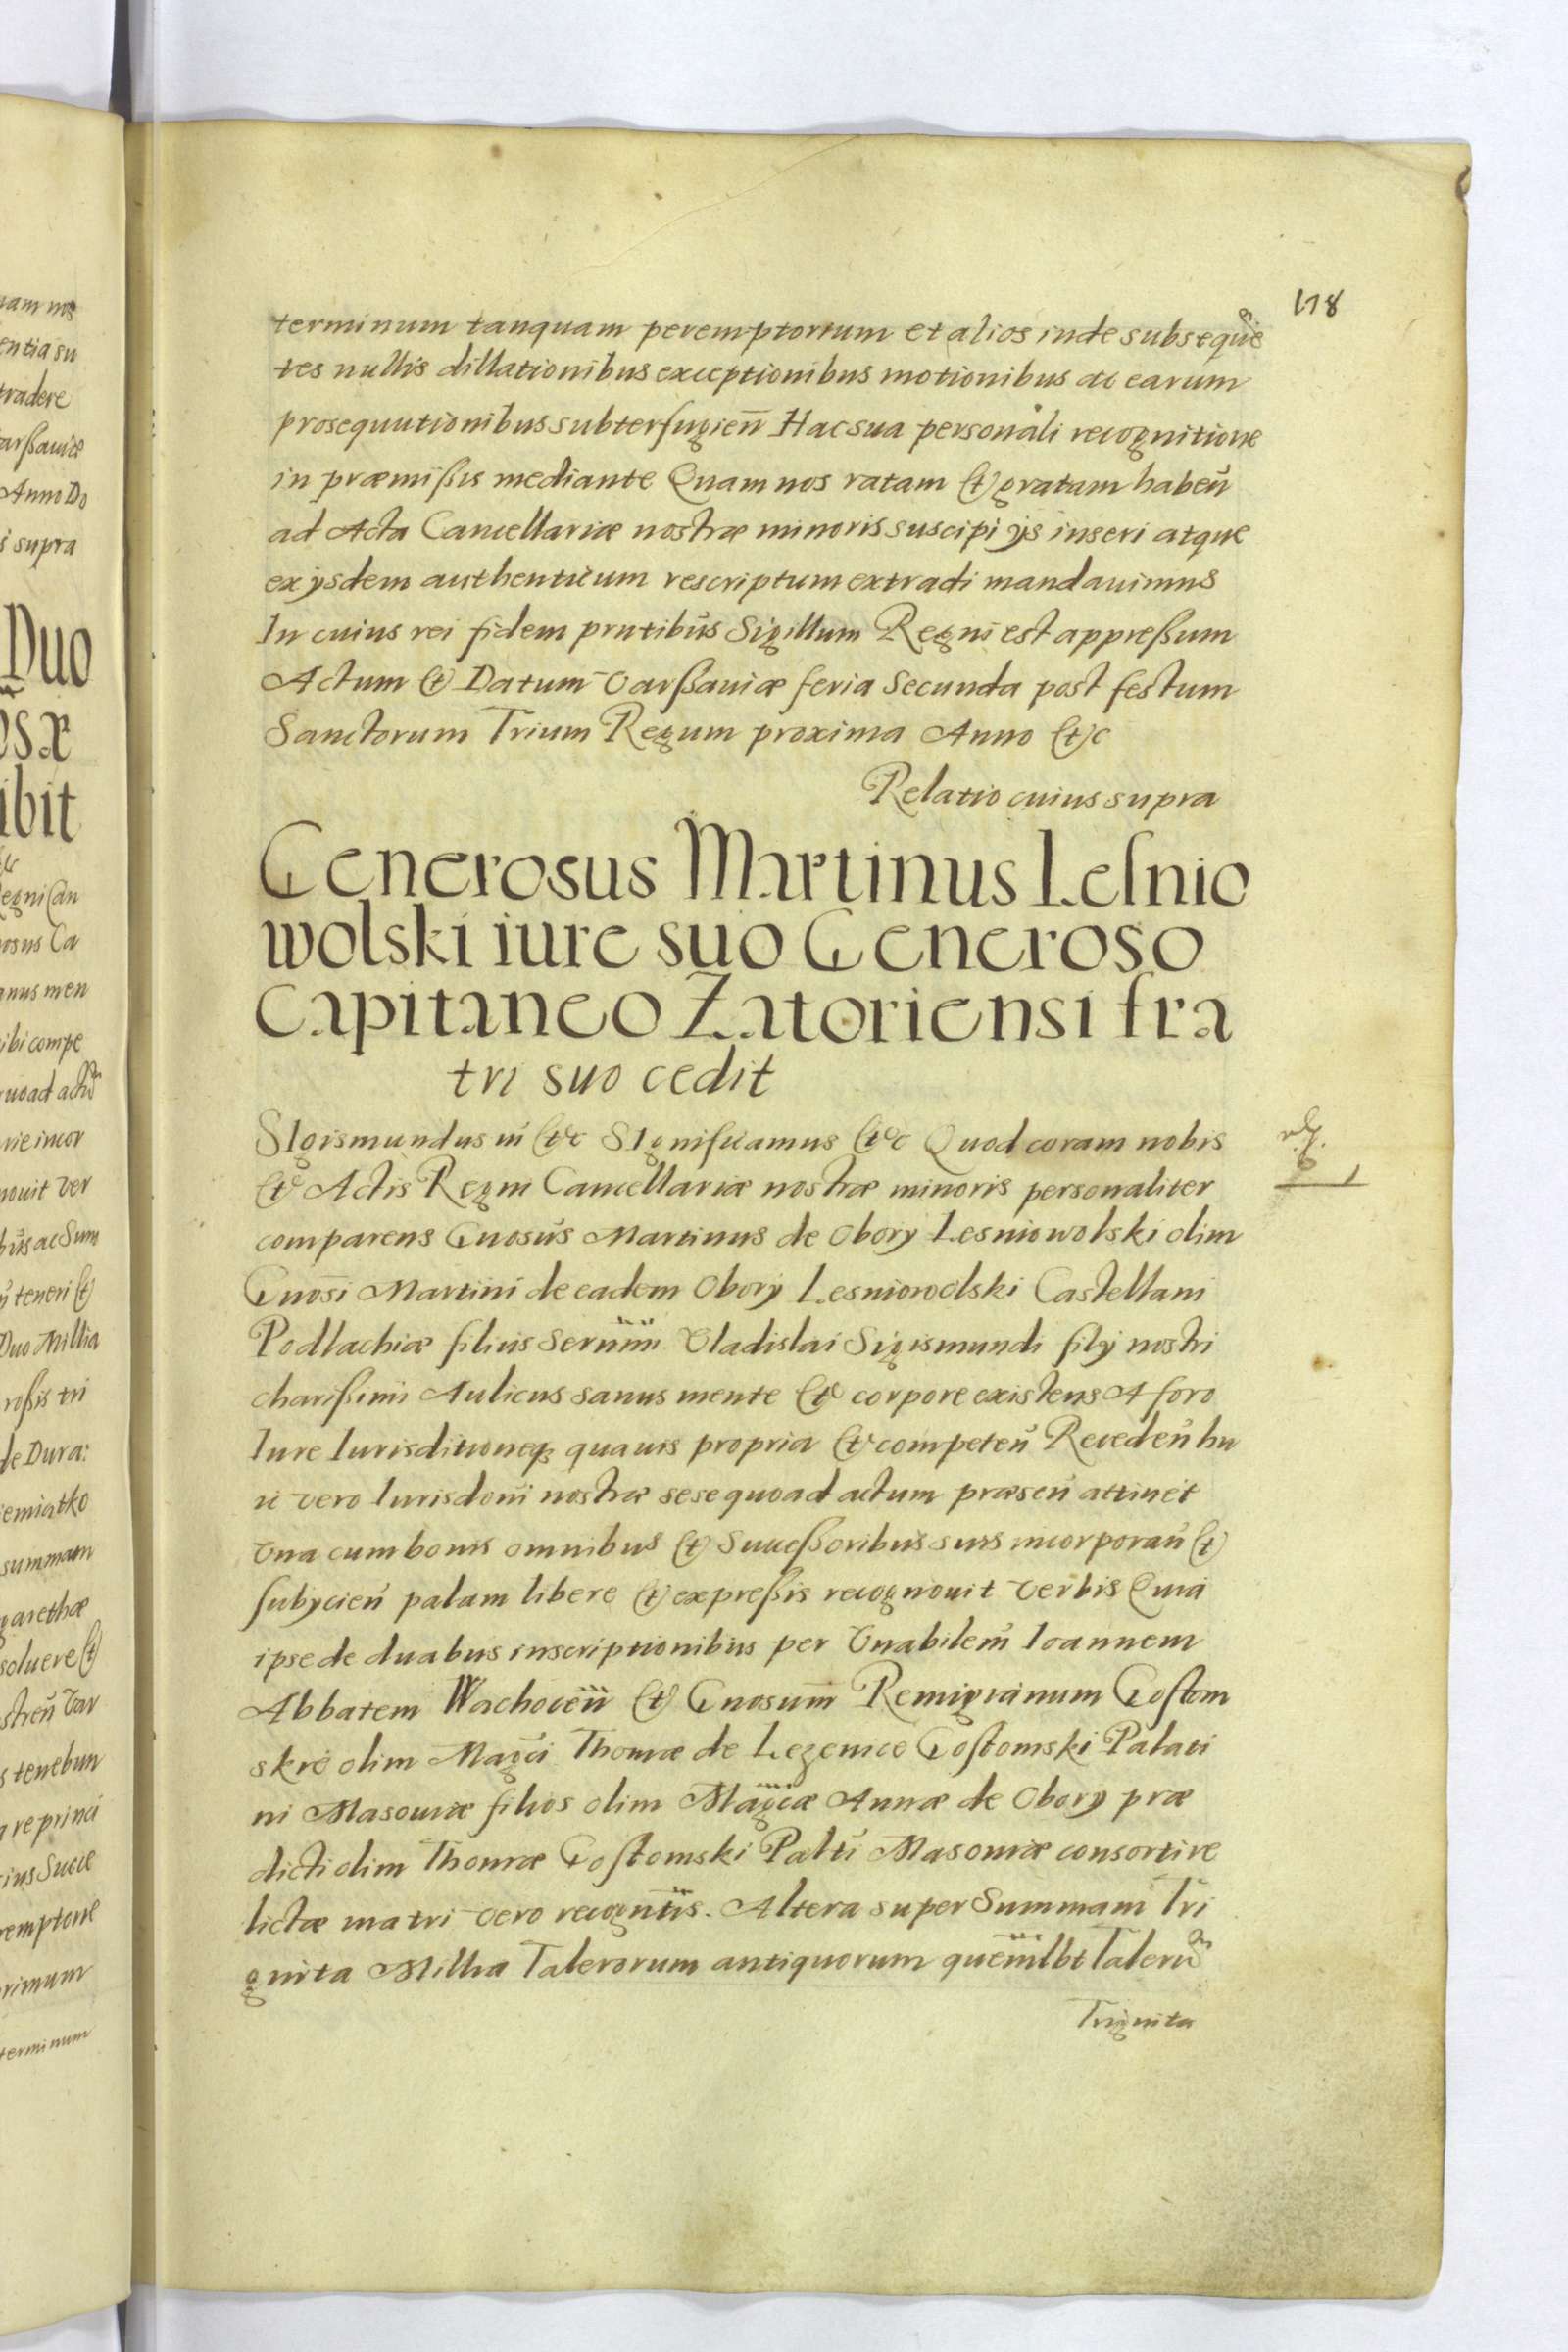 178
terminum tanquam peremptorium et alios inde subseque
tes nullis dillationibus exceptionibus motionibus ac earum
prosequutionibus subterfugieñ Hac sua personali recognitione
in præmißis mediante Quam nos ratam et gratam habeñ
ad Acta Cancellariæ nostræ minoris suscipi ijs inseri atque
ex ijsdem authenticum rescriptum extradi mandauimus
In cuius rei fidem pñtibus Sigillum Regni est appreßum
Actum et Datum Varßauiæ feria Secunda post festum
Sanctorum Trium Regum proxima Anno etc
Relatio cuius supra
Generosus Martinus Lesnio
wolski iure suo Generoso
Capitaneo Zatoriensi fra
tri suo cedit
SIgismundus iii etc SIgnificamus etc Quod coram nobis
et Actis Regni Cancellariæ nostræ minoris personaliter
comparens Gnosus Martinus de Obory Lesniowolski olim
Gnosi Martini de eadem Obory Lesniowolski Castellani
Podlachiæ filius Sereñmi Vladislai Sigismundi filij nostri
charißimi Aulicus sanus mente et corpore existens A foro
Iure Iurisditioneq quauis propria et competeñ Recedeñ hu
ic vero Iurisdoni nostræ sese quoad actum præseñ attinet
Vna cum bonis omnibus et Succeßoribus suis incorporañ et
subijcieñ palam libere et expreßis recognouit verbis Quia
ipse de duabus inscriptionibus per Vnabilem Ioannem
Abbatem Wachoceñ et Gnosum Remigianum Gostom
skie olim Magci Thomæ de Lezenice Gostomski Palati
ni Masouiæ filios olim Magcæ Annæ de Obory præ
dicti olim Thomæ Gostomski Palti Masouiæ consorti re
lictæ matri vero recogntis. Altera super Summam Tri
ginta Millia Talerorum antiquorum quemlbt Taleru
Triginta